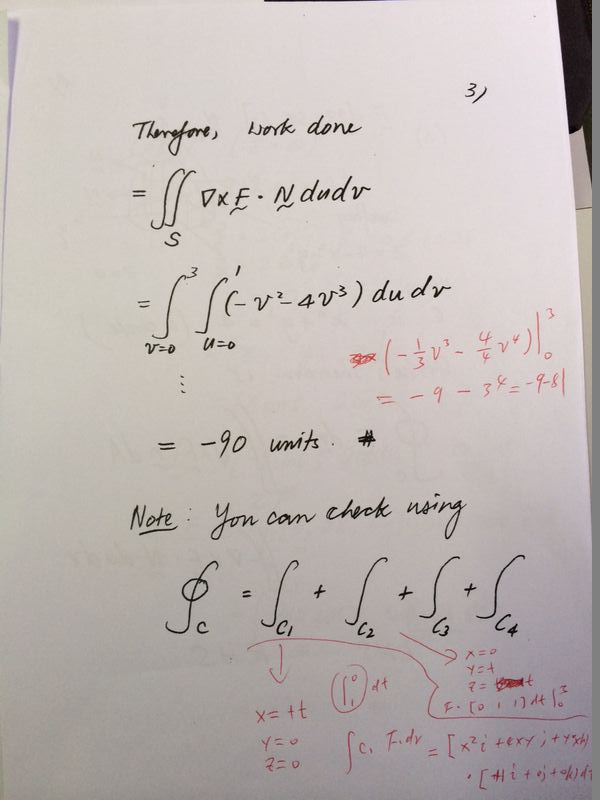 3)
Therefore, work done
= ∬_S ∇×F · N du dv
= ∫_{v=0}^{3} ∫_{u=0}^{1} (-v² - 4v³) du dv
(-1/3 v³ - 4/4 v⁴)|_0^3
⋮
= -9 - 3⁴ = -9-81
= -90 units. #
Note: You can check using
∮_C = ∫_{C1} + ∫_{C2} + ∫_{C3} + ∫_{C4}
x=0
y=t
z= t
∫_1^0 dt
F·[0 1 1] dt |_0^3
x= +t
y=0
z=0
∫_{C1} F·dr = [x² i + 4xy³ j + y²x k]
·[+1 i + 0j + 0k] dt